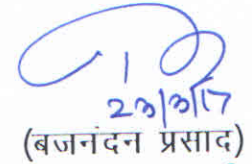 23/3/17
(बजनंदन प्रसाद)